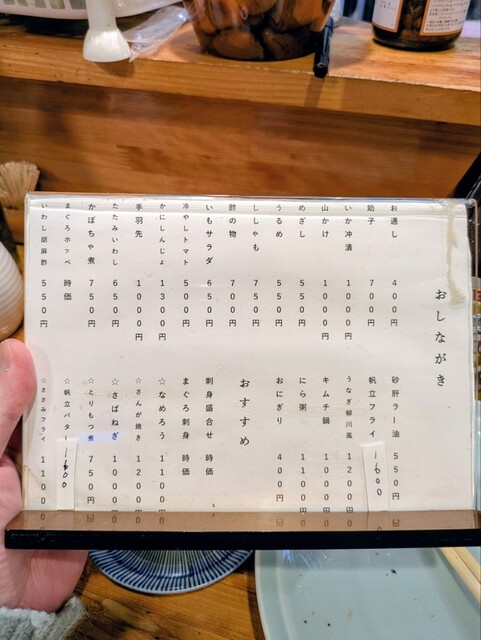 おしながき
お通し 400円
助子 700円
いか沖漬 1000円
山かけ 1000円
めざし 550円
うるめ 550円
ししゃも 750円
酢の物 700円
いもサラダ 650円
冷やしトマト 500円
かにしんじょ 1300円
手羽先 1000円
たたみいわし 650円
かぼちゃ煮 750円
まぐろホッペ 時価
いわし胡麻酢 550円
砂肝ラー油 550円
帆立フライ 1600
うなぎ柳川風 1200円
キムチ鍋
にら粥
おにぎり 400円
おすすめ
刺身盛合せ 時価
まぐろ刺身 時価
☆なめろう 1100円
☆さんが焼き 1200円
☆さばねぎ
☆とりもつ煮 750円
☆帆立バター 1600
☆ささみフライ 1100